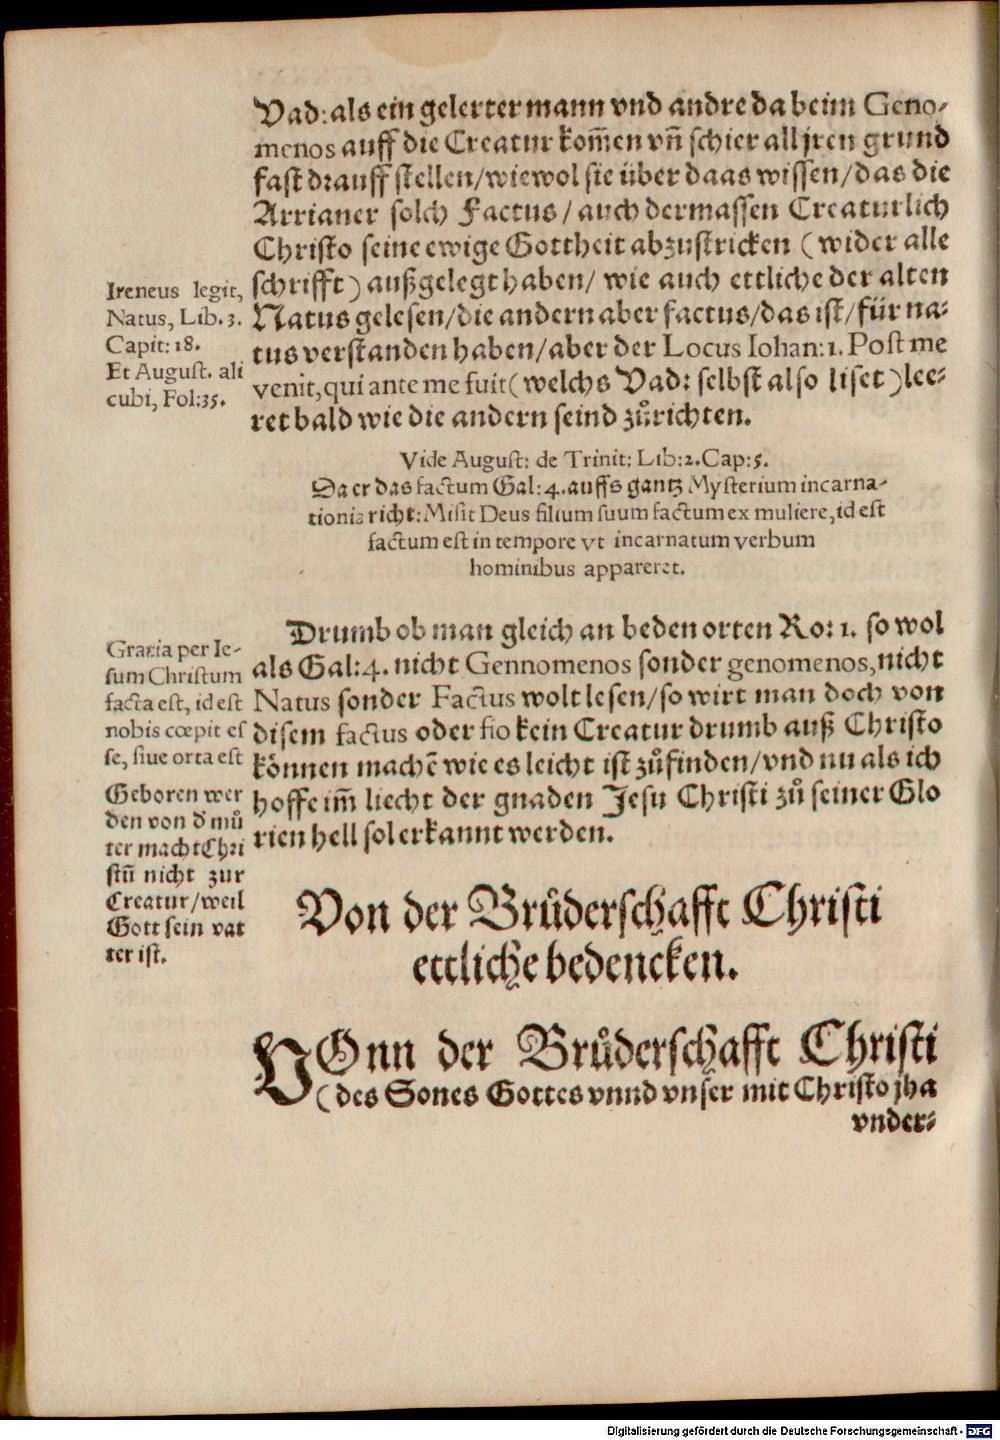 Vad: als ein gelerter mann vnd andre da beim Geno-
menos auff die Creatur kom̃en vñ schier all jren grund
fast drauff stellen/wiewol sie über daas wissen/das die
Arrianer solch Factus/auch dermassen Creaturlich
Christo seine ewige Gottheit abzustricken (wider alle
schrifft) außgelegt haben/ wie auch ettliche der alten
Natus gelesen/die andern aber factus/das ist/für na-
tus verstanden haben/aber der Locus Iohan: 1. Post me
venit, qui ante me fuit (welchs Vad: selbst also liset) lee-
ret bald wie die andern seind zůrichten.
Ireneus legit,
Natus, Lib. 3.
Capit: 18.
Et August. ali
cubi, Fol: 35.
Vide August: de Trinit: Lib: 2. Cap: 5.
Da er das factum Gal: 4. auffs gantz Mysterium incarna-
tionis richt: Misit Deus filium suum factum ex muliere, id est
factum est in tempore vt incarnatum verbum
hominibus appareret.
Drumb ob man gleich an beden orten Ro: 1. so wol
als Gal: 4. nicht Gennomenos sonder genomenos, nicht
Natus sonder Factus wolt lesen/so wirt man doch von
disem factus oder fio kein Creatur drumb auß Christo
können machẽ wie es leicht ist zůfinden/vnd nu als ich
hoffe im̃ liecht der gnaden Jesu Christi zů seiner Glo
rien hell sol erkannt werden.
Gratia per Ie-
sum Christum
facta est, id est
nobis cœpit es
se, siue orta est
Geboren wer
den von d' mů
ter macht Chri
stũ nicht zur
Creatur/weil
Gott sein vat
ter ist.
Von der Brůderschafft Christi
ettliche bedencken.
VOnn der Brůderschafft Christi
(des Sones Gottes vnnd vnser mit Christo jha
vnder-
Digitalisierung gefördert durch die Deutsche Forschungsgemeinschaft - DFG